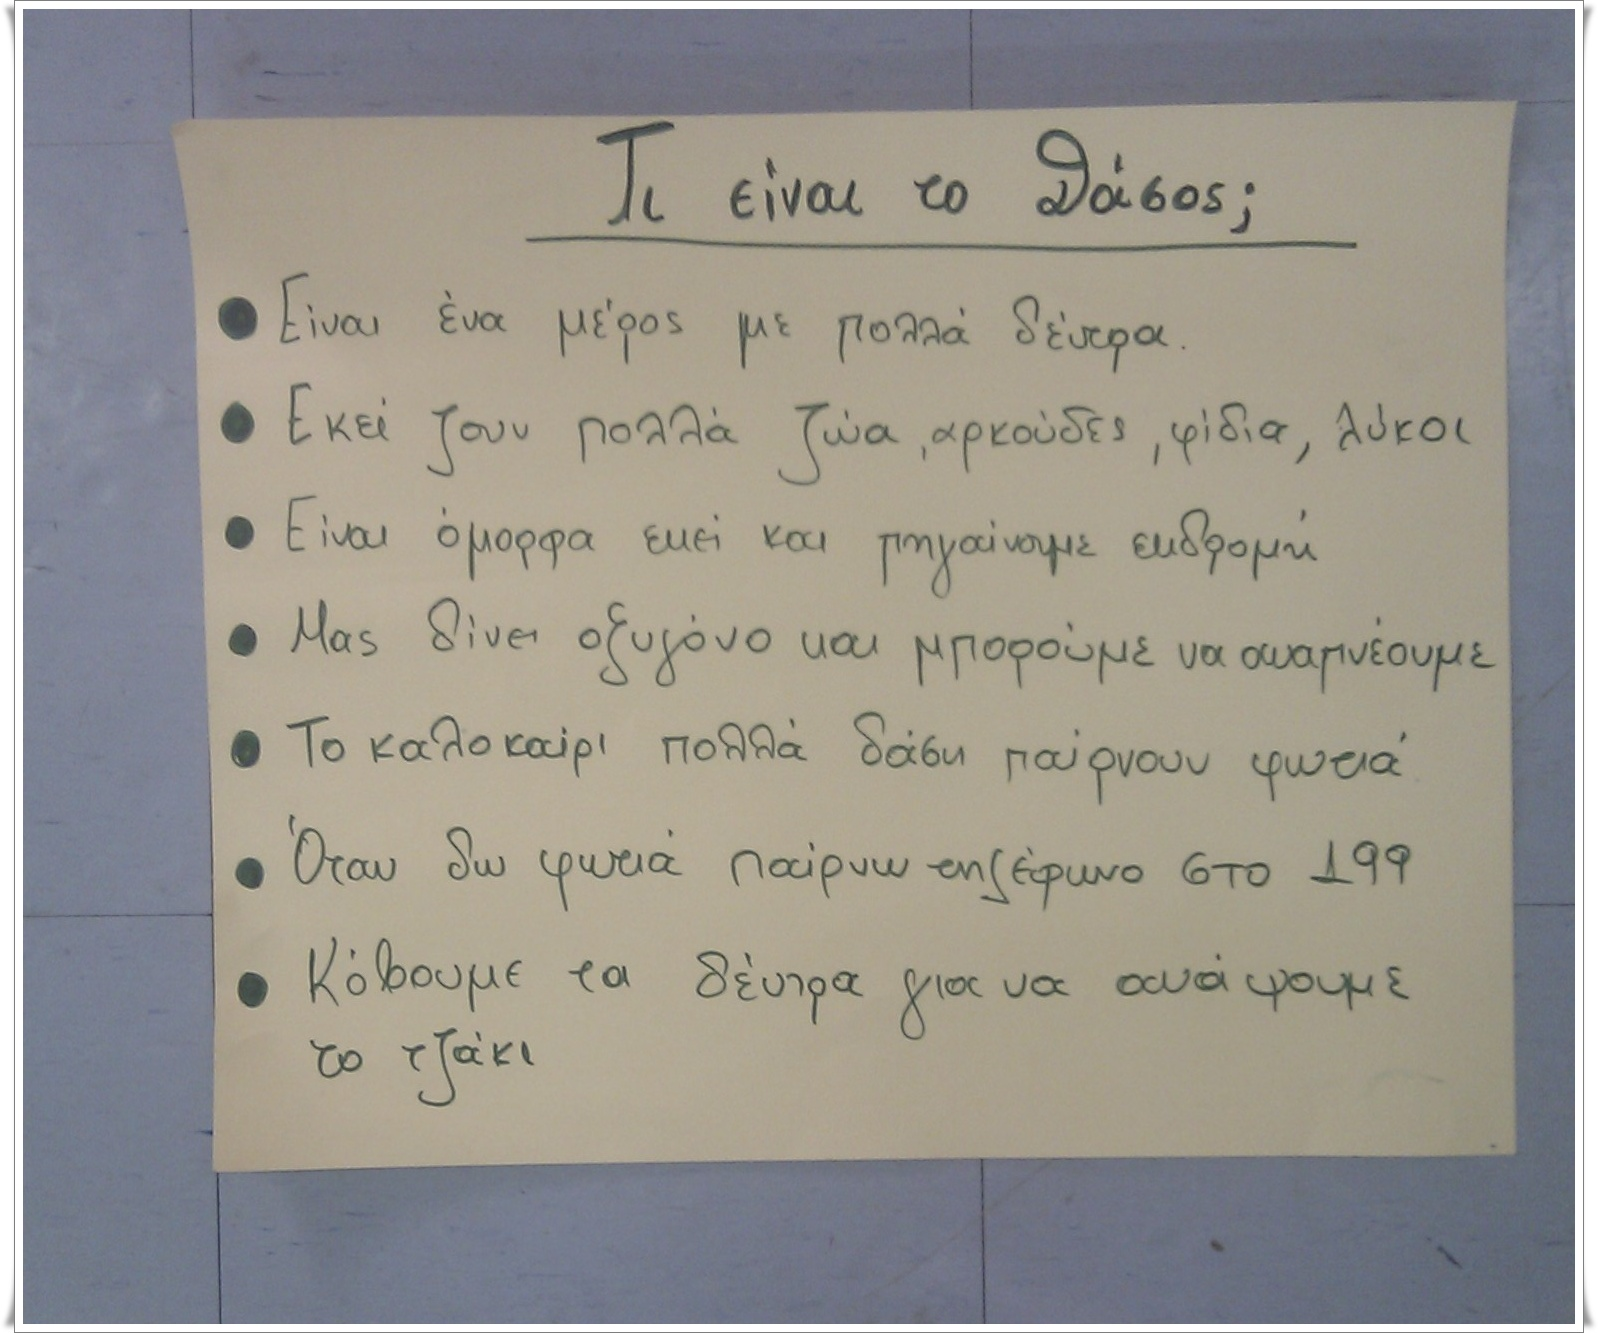 Τι είναι το δάσος;
• Είναι ένα μέρος με πολλά δέντρα.
• Εκεί ζουν πολλά ζώα, αρκούδες, φίδια, λύκοι
• Είναι όμορφα εκεί και πηγαίνουμε εκδρομή
• Μας δίνει οξυγόνο και μπορούμε να αναπνέουμε
• Το καλοκαίρι πολλά δάση παίρνουν φωτιά
• Όταν δω φωτιά παίρνω τηλέφωνο στο 199
• Κόβουμε τα δέντρα για να ανάψουμε
το τζάκι